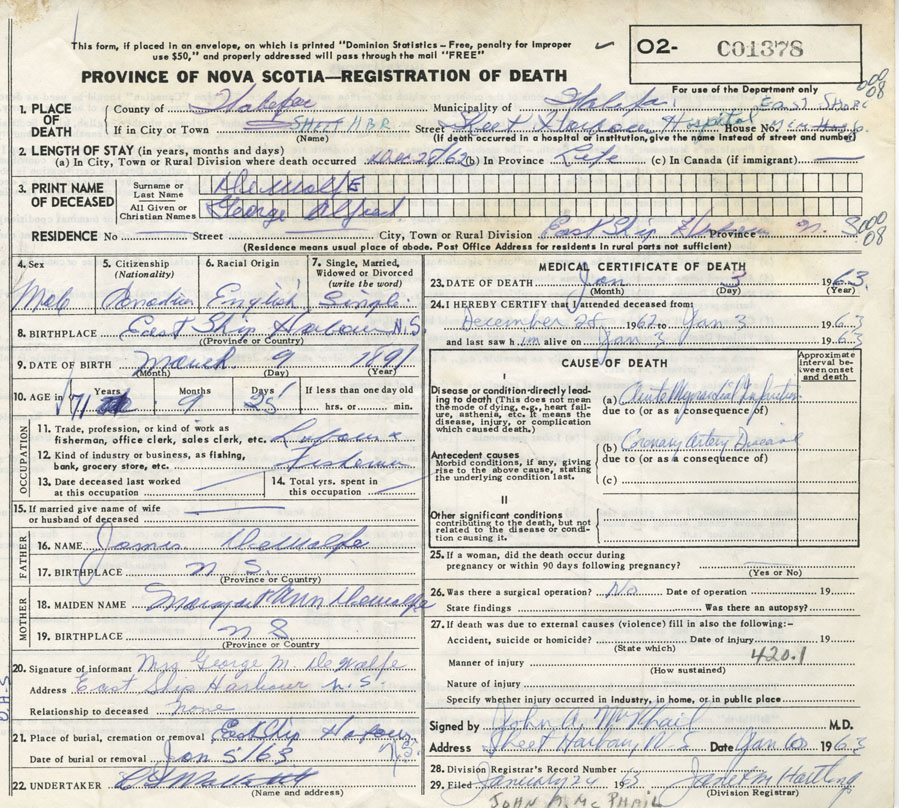 This form, if placed in an envelope, on which is printed "Dominion Statistics – Free, penalty for improper
use $50," and properly addressed will pass through the mail "FREE"
O2- C01378
For use of the Department only
PROVINCE OF NOVA SCOTIA—REGISTRATION OF DEATH
000
08
1. PLACE OF DEATH
County of Halifax Municipality of Halifax East Shore
If in City or Town SHEET HBR Street Sheet Harbour Hospital House No.
(Name) (If death occurred in a hospital or institution, give the name instead of street and number)
2. LENGTH OF STAY (in years, months and days)
(a) In City, Town or Rural Division where death occurred Dec 28/62 (b) In Province Life (c) In Canada (if immigrant)
3. PRINT NAME OF DECEASED
Surname or Last Name DeWolfe
All Given or Christian Names George Alfred
RESIDENCE No Street City, Town or Rural Division East Ship Harbour Province N. S.
000
08
(Residence means usual place of abode. Post Office Address for residents in rural parts not sufficient)
4. Sex Male
5. Citizenship (Nationality) Canadian
6. Racial Origin English
7. Single, Married, Widowed or Divorced (write the word) Single
8. BIRTHPLACE East Ship Harbour N.S.
(Province or Country)
9. DATE OF BIRTH March 9 1891
(Month) (Day) (Year)
10. AGE in Years 71 Months 9 Days 25 If less than one day old hrs. or min.
OCCUPATION
11. Trade, profession, or kind of work as fisherman, office clerk, sales clerk, etc. Labourer
12. Kind of industry or business, as fishing, bank, grocery store, etc.
13. Date deceased last worked at this occupation
14. Total yrs. spent in this occupation
15. If married give name of wife or husband of deceased
FATHER
16. NAME James DeWolfe
17. BIRTHPLACE N S.
(Province or Country)
MOTHER
18. MAIDEN NAME Margaret Ann DeWolfe
19. BIRTHPLACE N S
(Province or Country
20. Signature of informant Mrs George M. DeWolfe
Address East Ship Harbour N.S.
Relationship to deceased None
21. Place of burial, cremation or removal East Ship Harbour N.S.
Date of burial or removal Jan 5/63
22. UNDERTAKER
(Name and address)
D.H.S.
MEDICAL CERTIFICATE OF DEATH
23. DATE OF DEATH Jan 3 1963
(Month) (Day) (Year)
24. I HEREBY CERTIFY that I attended deceased from:
December 28 1962 to Jan 3 1963
and last saw him alive on Jan 3 1963
CAUSE OF DEATH
Approximate interval between onset and death
I
Disease or condition directly leading to death (This does not mean the mode of dying, e.g., heart failure, asthenia, etc. It means the disease, injury, or complication which caused death.)
(a) Acute Myocardial Infarction
due to (or as a consequence of)
Antecedent causes
Morbid conditions, if any, giving rise to the above cause, stating the underlying condition last.
(b) Coronary Artery Disease
due to (or as a consequence of)
(c)
II
Other significant conditions
contributing to the death, but not related to the disease or condition causing it.
25. If a woman, did the death occur during pregnancy or within 90 days following pregnancy?
(Yes or No)
26. Was there a surgical operation? No Date of operation 19
State findings Was there an autopsy?
27. If death was due to external causes (violence) fill in also the following:–
Accident, suicide or homicide? Date of injury 19
(State which)
420.1
Manner of injury
(How sustained)
Nature of injury
Specify whether injury occurred in industry, in home, or in public place
Signed by John A. McPhail M.D.
Address Sheet Harbour, N S Date Jan 10 1963
28. Division Registrar's Record Number
29. Filed January 24 63
(Division Registrar)
JOHN A. MC PHAIL